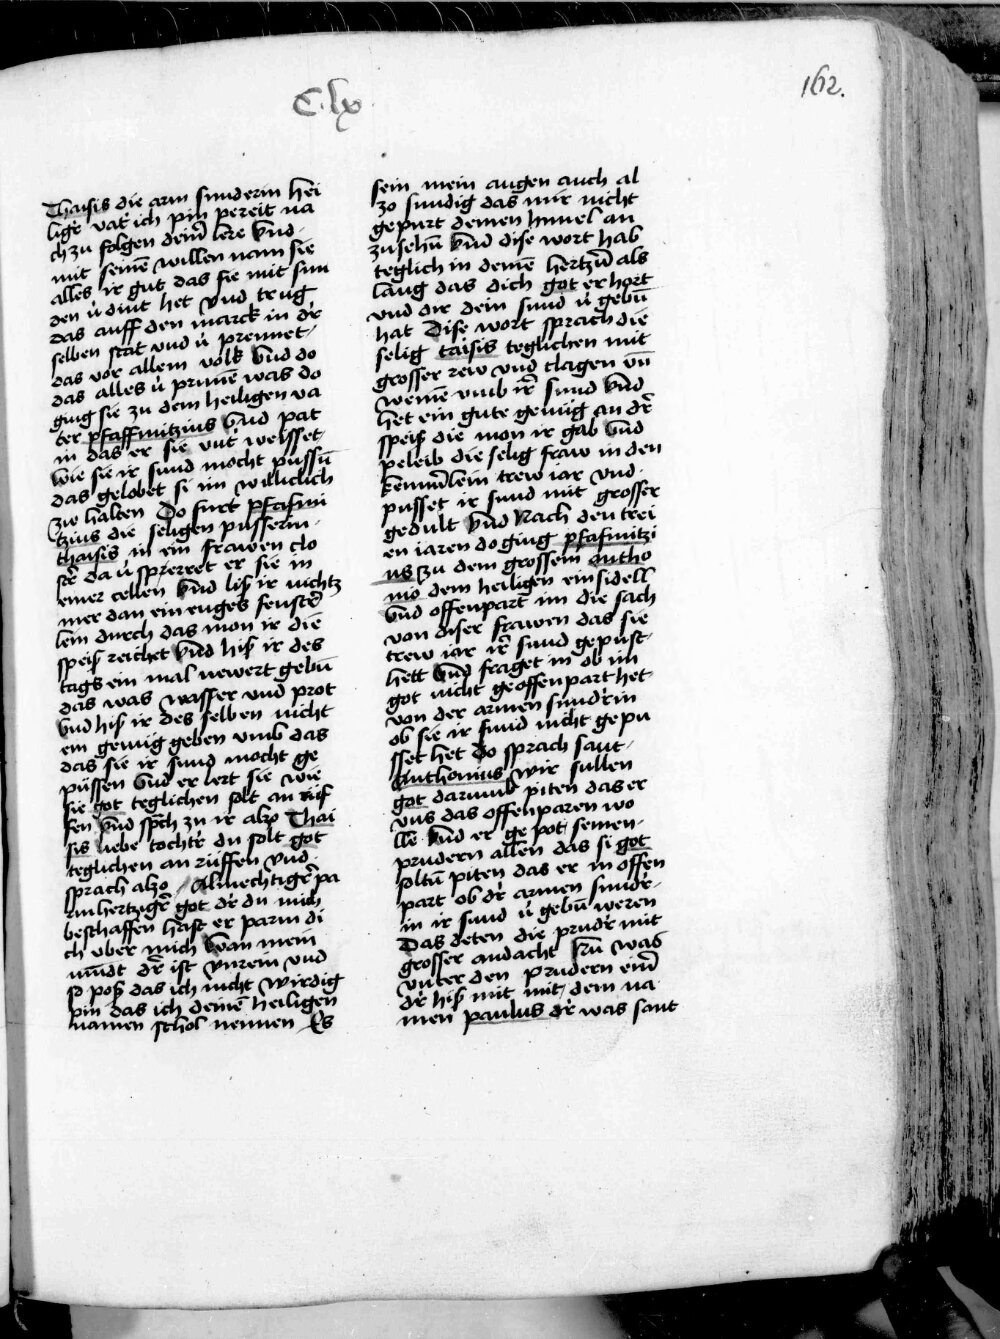 C lx
162.
Thaisis die arm sunderin hei
liger vat' ich pin pereit na
ch zu folgen deinē lere vnd
mit seinē willen nam sie
alles ir gut das sie mit sun
den v̓dint het vnd trug
das auff den marck in dr̓
selben stat vnd v̓prennet
das vor allem volk vnd do
das alles v̓prunnē was do
ging sie zu dem heiligen va
ter pfaffnitzius vnd pat
in das er sie vnt' weisset
wie sie ir sund mocht püssn̄
das gelobet si im williclich
zw halten Do furt pfafni
tzius die seligen pusserin
thaisis in ein frawen clo
str̓ da v̓sprerret er sie in
einer cellen vnd liß ir nichtz
mer dan ein enges fenstr̓
lein durch das mon ir die
speiß reichet vnd hiß ir des
tags ein mal newert gebn̄
das was wasser vnd prot
vnd hiß ir des selben nicht
ein genuig geben vmb das
das sie ir sund mocht ge
püssen vnd er lert sie wie
sie got teglichen solt an rüf
fen vnd sp̄ch zu ir alzo Thai
sis liebe tochtr̓ du solt got
teglichen an rüffen vnd
sprach alzo Almechtigr̓ pa
rmhertzigr̓ got dr̓ du mich
beschaffen hast er parm di
ch vber mich wan mein
mundt dr̓ ist vnrein vnd
so poß das ich nicht wirdig
pin das ich deinē heiligen
namen schol nennen Es
sein mein augen auch al
zo sundig das mir nicht
gepurt deinen himel an
zusehn̄ vnd dise wort hab
teglich in deinē hertzn̄ als
lang das dich got erhort
vnd dir dein sund v̓gebn̄
hat Dise wort sprach die
selig taisis teglichen mit
grosser rew vnd clagen vn̄
weinē vmb ir̓ sund vnd
het ein gute genuig an dr̓
speiß die mon ir gab vnd
peleib die selig fraw in den
kemm̄lein trew iar vnd
pusset ir sund mit grosser
gedult vnd Nach den trei
en iaren do ging pfafnitzi
us zu dem grossem antho
nio dem heiligen einsidell
vnd offenpart im die sach
von diser frawen das sie
trew iar ir̓ sund gepust
hett vnd fraget in ob im
got nicht geoffenpart het
von der armen sundr̓in
ob sie ir sund nicht gepu
sset het Do sprach sant
Anthonius wir sullen
got darumb piten das er
vns das offenparen wo
lle vnd er ge pot seinen
prudern allen das si got
soltn̄ piten das er in offen
part ob dr̓ armen sundr̓
in ir sund v̓gebn̄ weren
Das deten die prudr̓ mit
grosser andacht was
vnter den prudern einr̓
dr̓ hiß mit mit dem na
men paulus dr̓ was sant